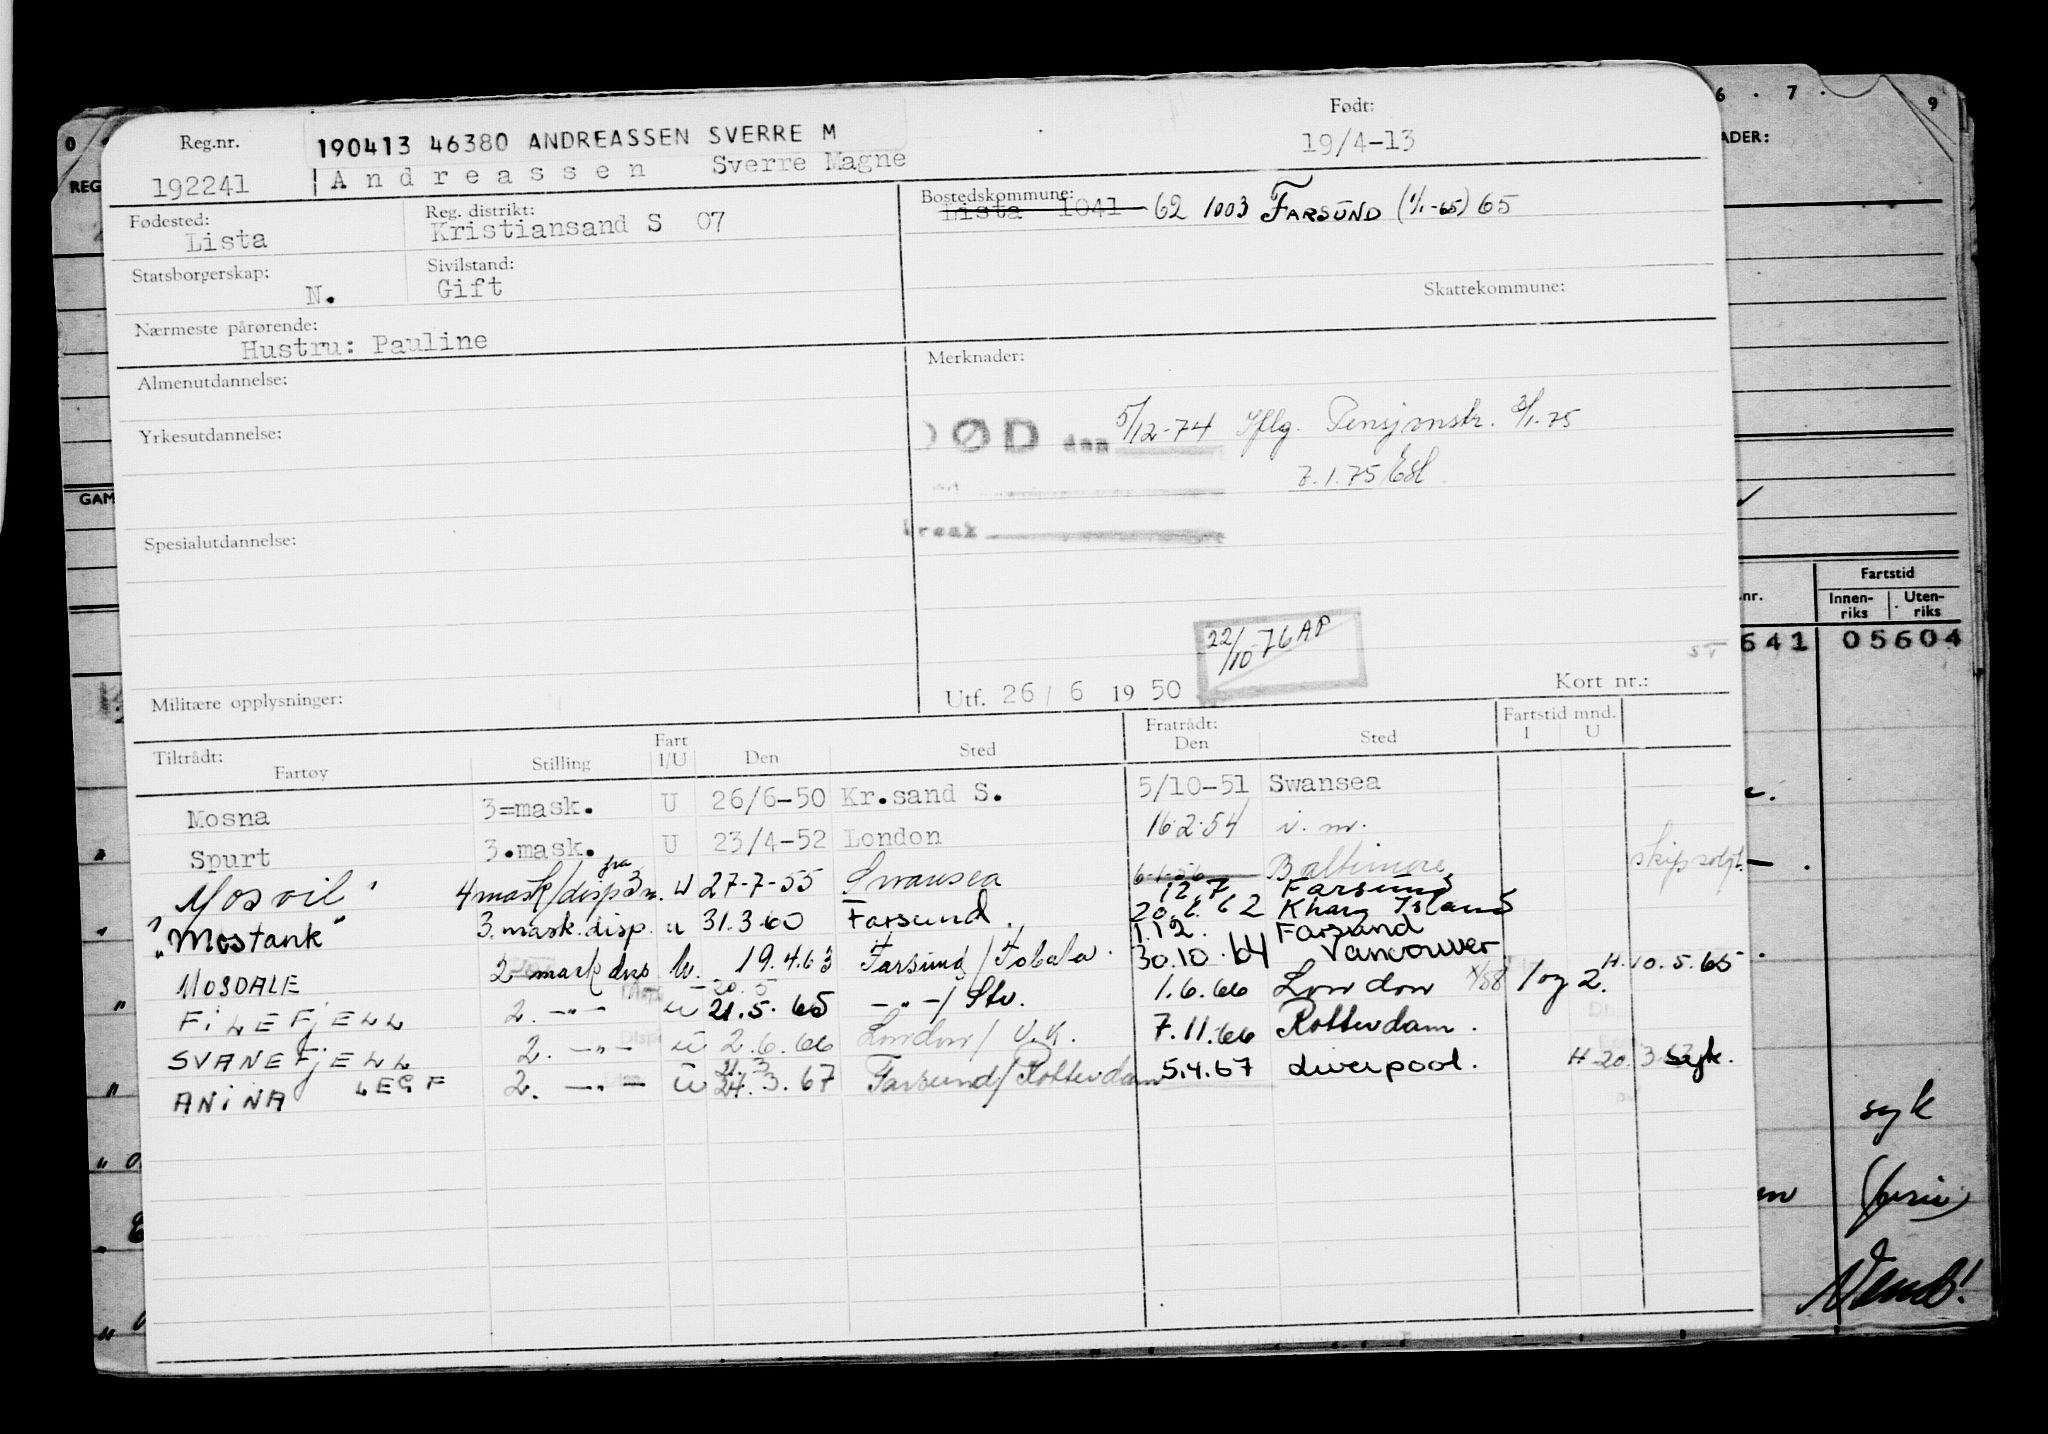 6 . 7 . 9
0
Reg.nr. 190413 46380 ANDREASSEN SVERRE M Født:
192241 Andreassen Sverre Magne 19/4-13
REG
ADER:
Fødested: Reg. distrikt: Bostedskommune:
Lista Kristiansand S 07 Lista 1041 62 1003 FARSUND (1/1-65) 65
Statsborgerskap: Sivilstand:
N. Gift Skattekommune:
Nærmeste pårørende:
Hustru: Pauline
Almenutdannelse: Merknader:
Yrkesutdannelse: DØD den 5/12-74 Iflg. Pensjonstr. 3/1-75
7.1.75
GAM
Spesialutdannelse:
Fartstid
nr. Innenriks Utenriks
641 05604
22/10-76 AP
Militære opplysninger: Utf. 26/6 1950 Kort nr.:
Tiltrådt: Fratrådt: Fartstid mnd.
Fartøy Stilling Fart I/U Den Sted Den Sted I U
Mosna 3=mask. U 26/6-50 Kr.sand S. 5/10-51 Swansea
Spurt 3.mask. U 23/4-52 London 16.2.54 i. m.
Mosvil 4 mask/disp fra 3 m. U 27-7-55 Swansea 6-1-56 Baltimore skip solgt
12.7 Farsund
"Mostank" 3. mask. disp. u 31.3.60 Farsund. 20.6.62 Kharg Island
1.12. Farsund
MOSDALE 2 mask disp U. 19.4.63 Farsund/ 30.10.64 Vancouver
20.5 H. 10.5.65
FILEFJELL 2. -"- U 21.5.65 -"-/ Stv. 1.6.66 London 1 og 2.
SVANEFJELL 2. -"- U 2.6.66 London/ U.K. 7.11.66 Rotterdam.
21.3
ANINA 2. -"- U 24.3.67 Farsund/Rotterdam 5.4.67 Liverpool. H 20.3.67 syk.
syk